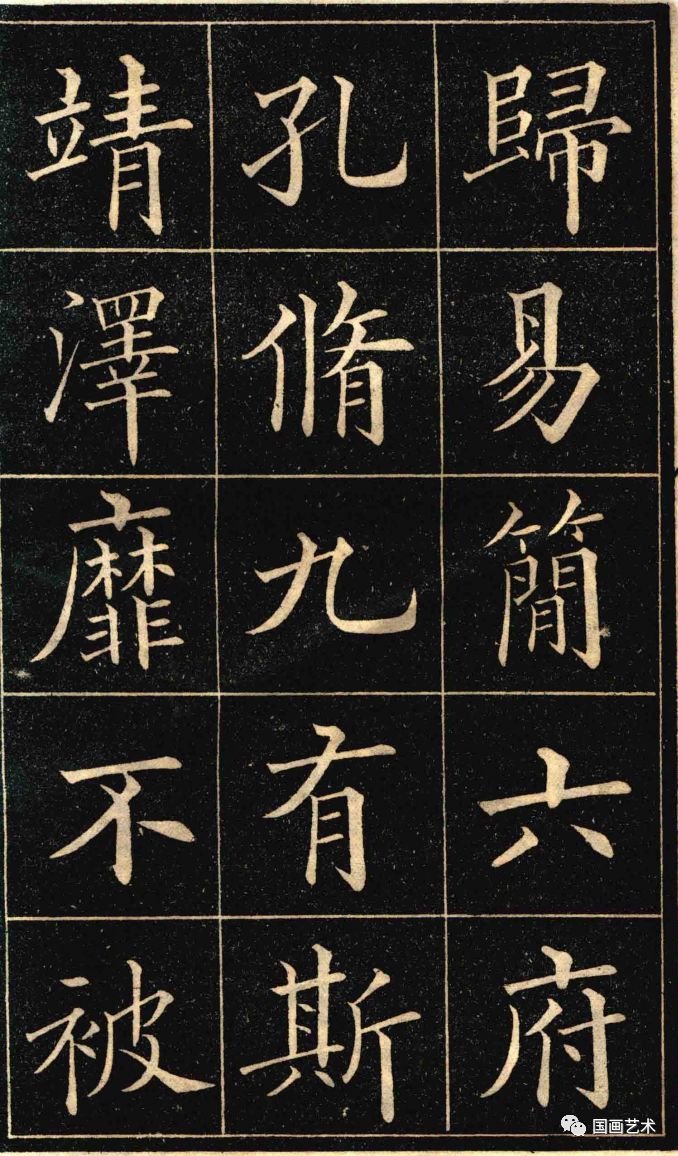 歸易簡六府
孔脩九有斯
靖澤靡不被
国画艺术